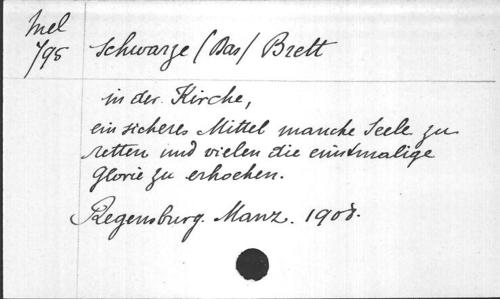 Mel
798
Schwarze /Das/ Brett
in der Kirche,
ein sicheres Mittel manche Seele zu
retten und vielen die einstmalige
Glorie zu erhoehen.
Regensburg. Manz. 1908.